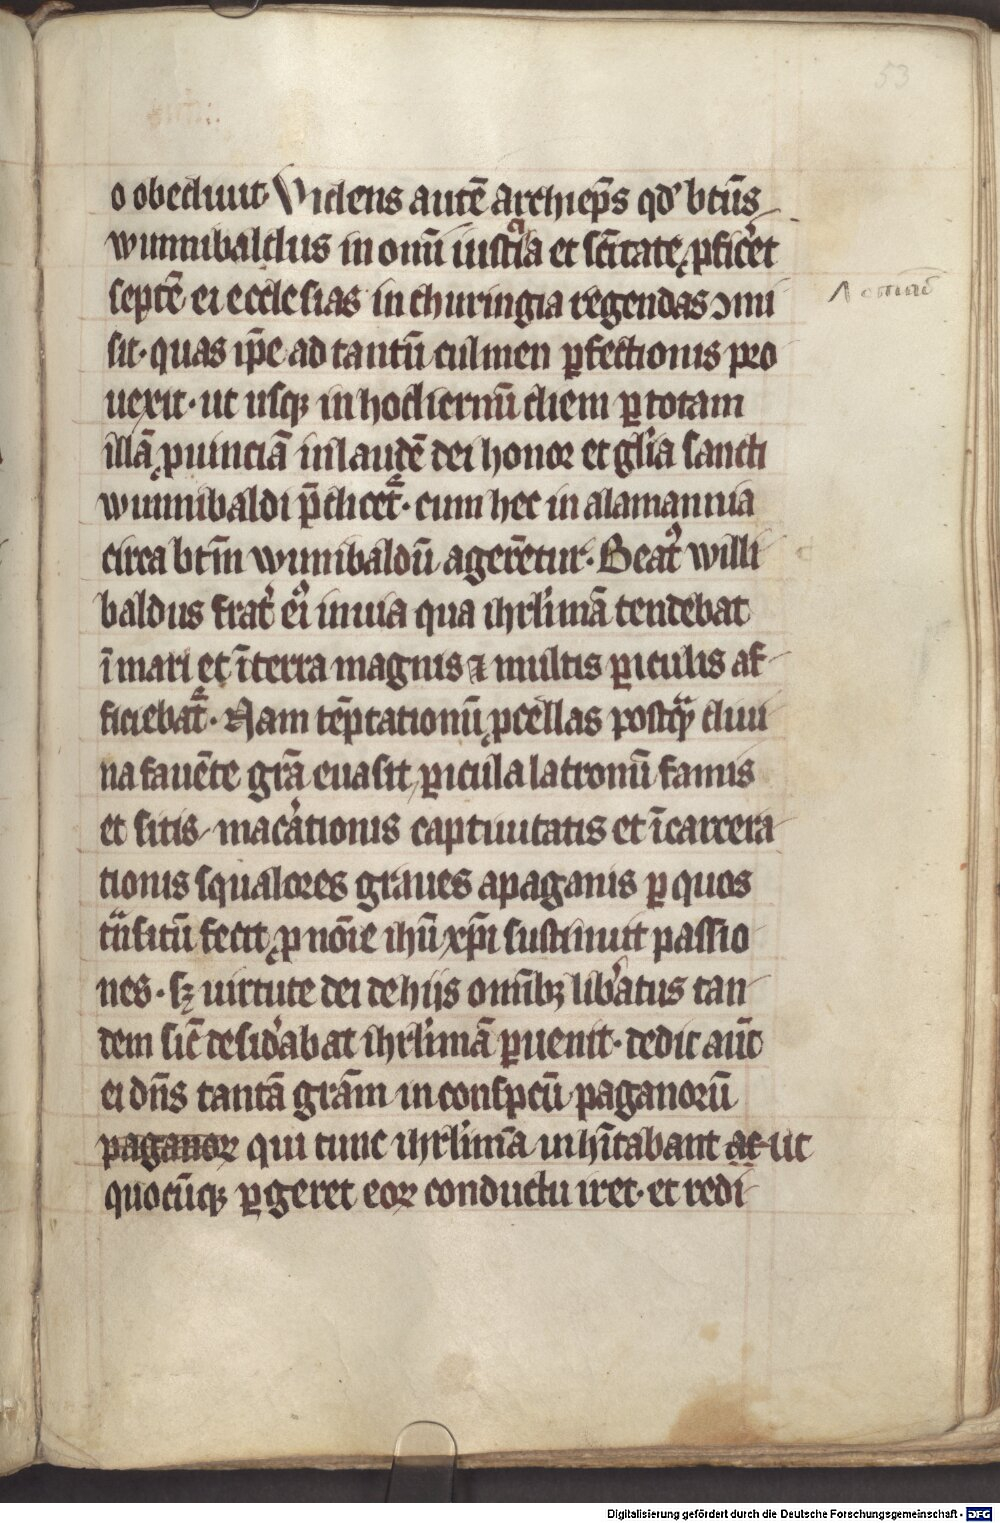 53
o obediuit· Videns autē archiep̄s qd' btūs
wunnibaldus in omī iusticia et sc̄itate ꝓficeret
septē ei ecclesias in thuringia regendas ꝯmi
sit· quas ip̄e ad tantū culmen ꝑfectionis pro
uexit· ut usqꝫ in hodiernū diem ꝑ totam
illā ꝓuinciā in laudē dei honor et gl'ia sancti
wunnibaldi p̄dicet᷑· cum hec in alamannia
circa btm̄ wunibaldū agerētur· Beat᷒ willi
baldus frat' ei᷒ in uia qua ihrl'imā tendebat
ī mari et ī terra magnis ⁊ multis ꝑiculis af
ficiebat᷑· Nam tēptationū ꝓcellas postqͣ diui
na fauēte gr̄a euasit, ꝑicula latronū famis
et sitis, mac'ationis captiuitatis et īcarcera
tionis squalores graues a paganis ꝑ quos
tͣnsitū fecit ꝓ nōie ihū xp̄i sustinuit passio
nes· sꝫ uirtute dei de hijs omībꝫ lib'atus tan
dem sic̄ desid'abat ihrl'imā ꝑuenit· dedit aūt
ei dn̄s tantā grām in conspcū paganorū
paganoꝝ qui tunc ihrl'imā inhītabant at ut
quocūqꝫ ꝑgeret eoꝝ conductu iret· et redi
Digitalisierung gefördert durch die Deutsche Forschungsgemeinschaft - DFG